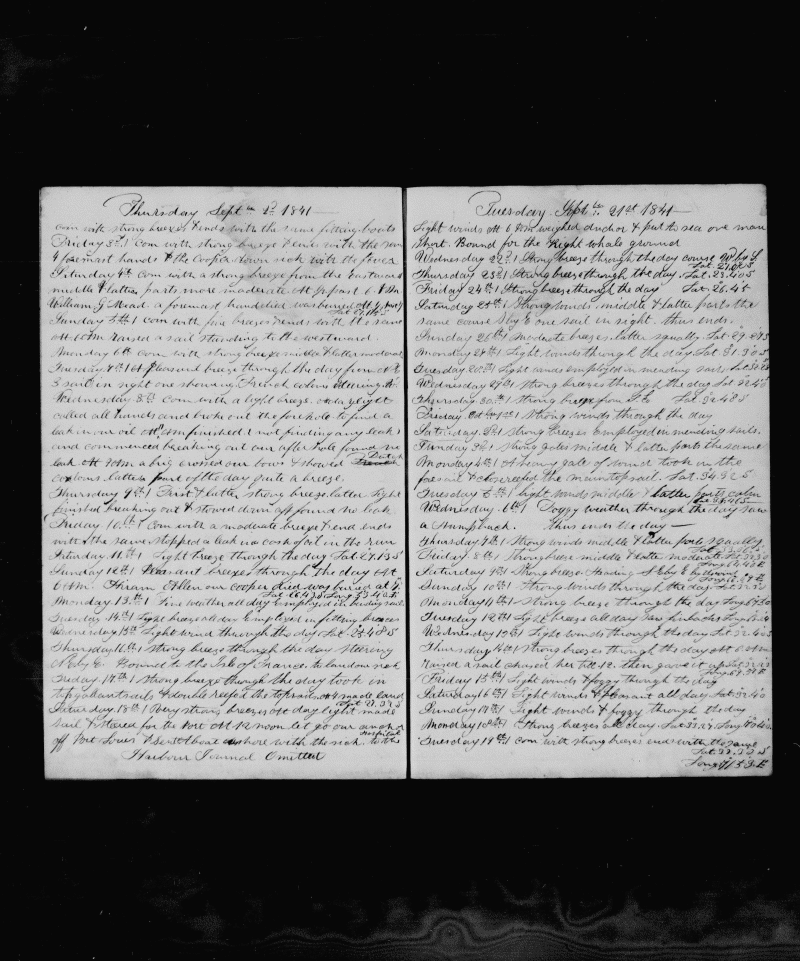 Thursday Sept 2d 1841
com with strong breezes & ends with the same fitting boats
Friday 3d 1 Com with strong breeze & ends with the same
4 foremast hands & the Cooper down sick with the fever
Saturday 4th Com with a strong breeze from the Eastward
middle & latter parts more moderate At past 6 AM
William G Mead a foremast hand died was buried At
Sunday 5th 1 com with fine breezes & ends with the same
At 6 AM Raised a sail standing to the westward
Monday 6th com with strong breeze middle & latter moderate
Tuesday 7th 1 pleasant breeze through the day from
3 sail in sight one showing French colors
Wednesday 8th Com with a light breeze at daylight
called all hands and broke out the forehole to find a
leak in our oil At AM finished not finding any leak
and commenced breaking out our after hole found no
leak At AM a brig crossed our bows & showed Dutch
colours latter part of the day quite a breeze
Thursday 9th 1 First & latter strong breeze latter light
finished breaking out & stowed down aft found no leak
Friday 10th 1 Com with a moderate breeze & ends
with the same stopped a leak in a cask of oil in the run
Saturday 11th 1 Light breeze through the day Lat 27.13 S
Sunday 12th 1 Pleasant breezes through the day At
6 AM Hiram Allen our Cooper died was buried at 9
Lat 26.43 S Long
Monday 13th 1 Fine weather all day Employed in bending sails
Tuesday 14th 1 Light breeze all day Employed in fitting
Wednesday 15th Light wind through the day Lat 25.48 S
Thursday 16th 1 strong breeze through the day steering
N by E Bound to the Isle of France to land our sick
Friday 17th 1 strong breeze through the day took in
topgallantsails & double reefed the topsails At made land
Saturday 18th 1 Very strong breezes At day light made
sail & steered for the Port At 12 noon let go our anchor
off Port Louis & sent a boat ashore with the sick to the Hospital
Harbour Journal Omitted
Tuesday Sept 21st 1841
Light winds At 6 AM weighed anchor & put to sea one man
short Bound for the Right whale ground
Wednesday 22d 1 Strong breeze through the day course
Thursday 23d 1 Strong breeze through the day. Lat. 23.40 S
Friday 24th 1 Strong breeze through the day Lat. 26.4 S
Saturday 25th 1 Strong winds middle & latter parts the
same course S by E one sail in sight. thus ends.
Sunday 26th 1 Moderate breezes latter squally Lat. 29.29 S
Monday 27th 1 Light winds through the day Lat 31.30 S
Tuesday 28th 1 Light winds employed in mending sails
Wednesday 29th 1 Strong breezes through the day Lat 32
Thursday 30th 1 Strong breeze from S.E Lat. 32.48 S
Friday Oct 1st 1 Strong winds through the day
Saturday 2d Strong breezes Employed in mending sails.
Sunday 3d 1 Strong gales middle & latter parts the same
Monday 4th 1 A heavy gale of wind took in the
foresail & close reefed the maintopsail Lat. 34.32 S
Tuesday 5th 1 Light winds middle & latter parts calm
Wednesday 6th 1 Foggy weather through the day saw
a Humpback. Thus ends the day
Thursday 7th 1 Strong winds middle & latter parts squally
Friday 8th 1 Strong breeze middle & latter moderate
Saturday 9th 1 Strong breeze Heading S by E
Sunday 10th 1 Strong winds through the day
Monday 11th 1 Strong breeze through the day
Tuesday 12th 1 Light breeze all day saw finbacks
Wednesday 13th 1 Light winds through the day
Thursday 14th 1 Strong breezes through the day At 6 AM
Raised a sail chased her till 12 then gave it up
Friday 15th 1 Light winds & foggy through the day
Saturday 16th 1 Light winds & pleasant all day Lat 32.40
Sunday 17th 1 Light winds & foggy through the day
Monday 18th 1 Strong breezes all day
Tuesday 19th 1 Com with strong breezes ends with the same
Lat. 33.33 S
Long 71.53 E